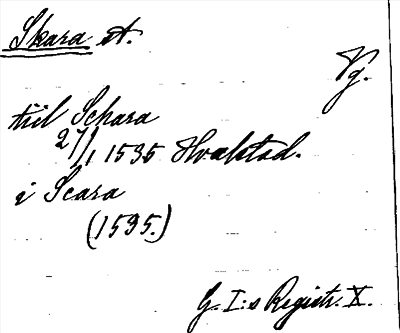 Skara st.
Vg.
till Schara
27/1 1535 Hvalstad.
i Scara
(1535.)
G. I:s Registr. X.